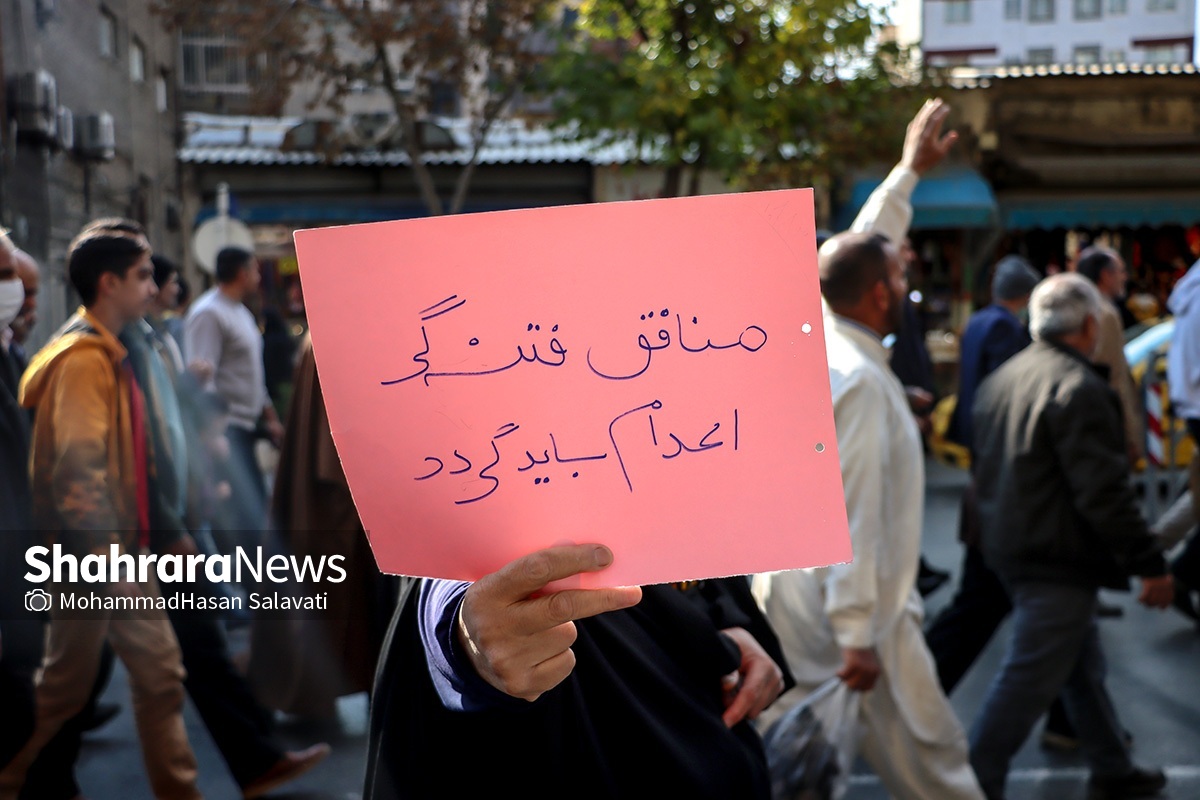 منافق فتنه‌گر
اعدام باید گردد
ShahraraNews
MohammadHasan Salavati